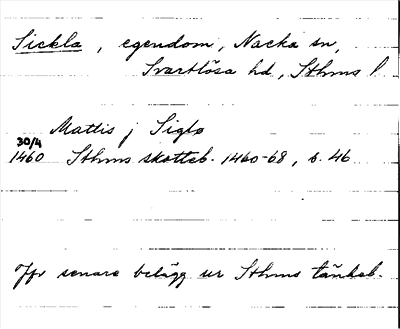 Sickla, egendom, Nacka sn,
Svartlösa hd, Sthms l
Mattis j Siglo
30/4
1460 Sthms skotteb. 1460-68, s. 46
Jfr senare belägg ur Sthms tänkeb.